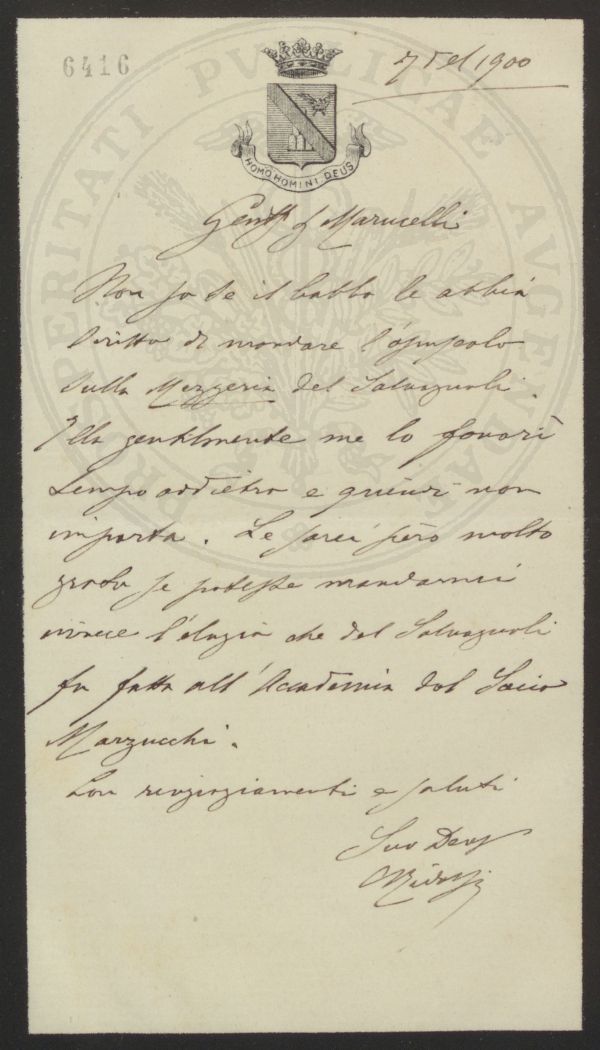 6416
7 Feb 1900
HOMO HOMINI DEUS
PROSPERITATI PUBLICAE AUGENDAE
Gent. Marucelli
Non so se il babbo le abbia
scritto di mandare l'opuscolo
sulla Mezzeria del Salvagnoli.
Ella gentilmente me lo favorì
tempo addietro e quindi non
importa. Le sarei però molto
grato se potesse mandarmi
invece l'elogio che del Salvagnoli
fu fatto all'Accademia dal Socio
Marzucchi.
Con ringraziamenti e saluti
Suo Dev